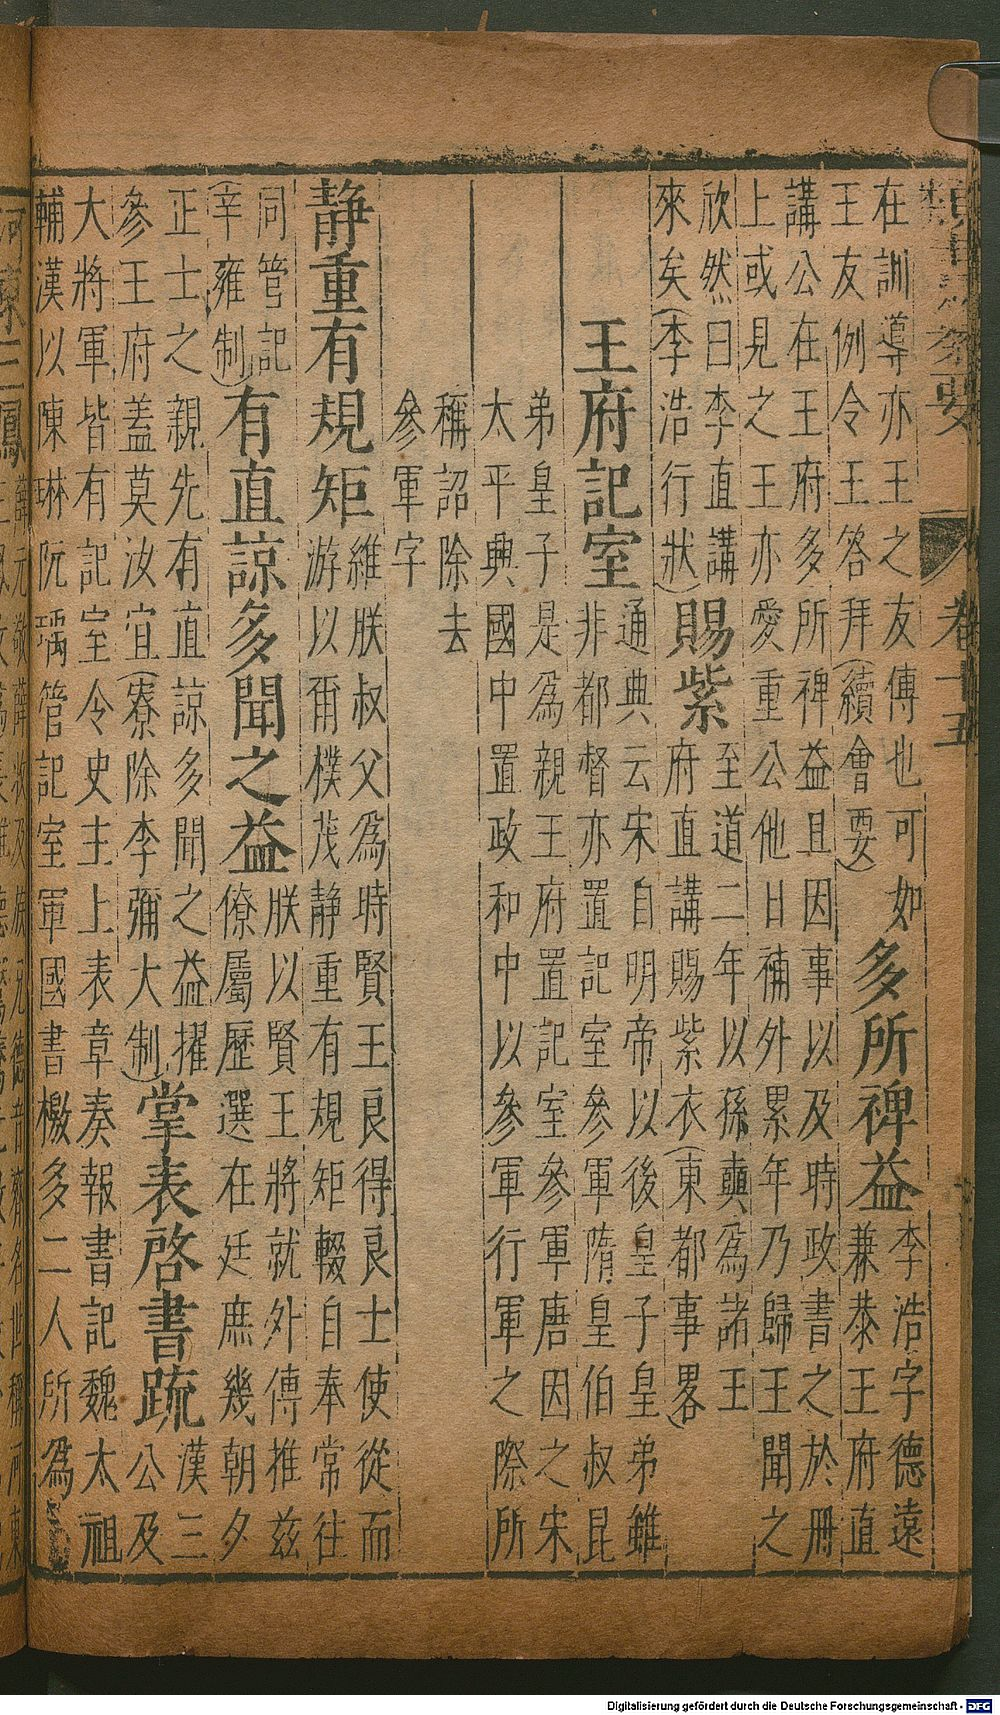 類書 要 卷十五
在訓導亦王之友傅也可如
王友例令王答拜(續會要)
多所裨益
李浩字德遠
兼恭王府直
講公在王府多所裨益且因事以及時政書之於冊
上或見之王亦愛重公他日補外累年乃歸王聞之
欣然曰李直講
來矣(李浩行狀)
賜紫
至道二年以孫蠙為諸王
府直講賜紫衣(東都事畧)
王府記室
通典云宋自明帝以後皇子皇弟雖
非都督亦置記室參軍隋皇伯叔昆
弟皇子是為親王府置記室參軍唐因之宋
太平興國中置政和中以參軍行軍之際所
稱詔除去
參軍字
静重有規矩
維朕叔父為時賢王良得良士使從而
游以爾樸茂静重有規矩輟自奉常往
同管記
(辛雍制)
有直諒多聞之益
朕以賢王將就外傅推兹
僚屬歷選在廷庶幾朝夕
正士之親先有直諒多聞之益擢
參王府蓋莫汝宜(寮除李彌大制)
掌表啓書疏
漢三
公及
大將軍皆有記室令史主上表章奏報書記魏太祖
輔漢以陳琳阮瑀管記室軍國書檄多二人所為
Digitalisierung gefördert durch die Deutsche Forschungsgemeinschaft - DFG